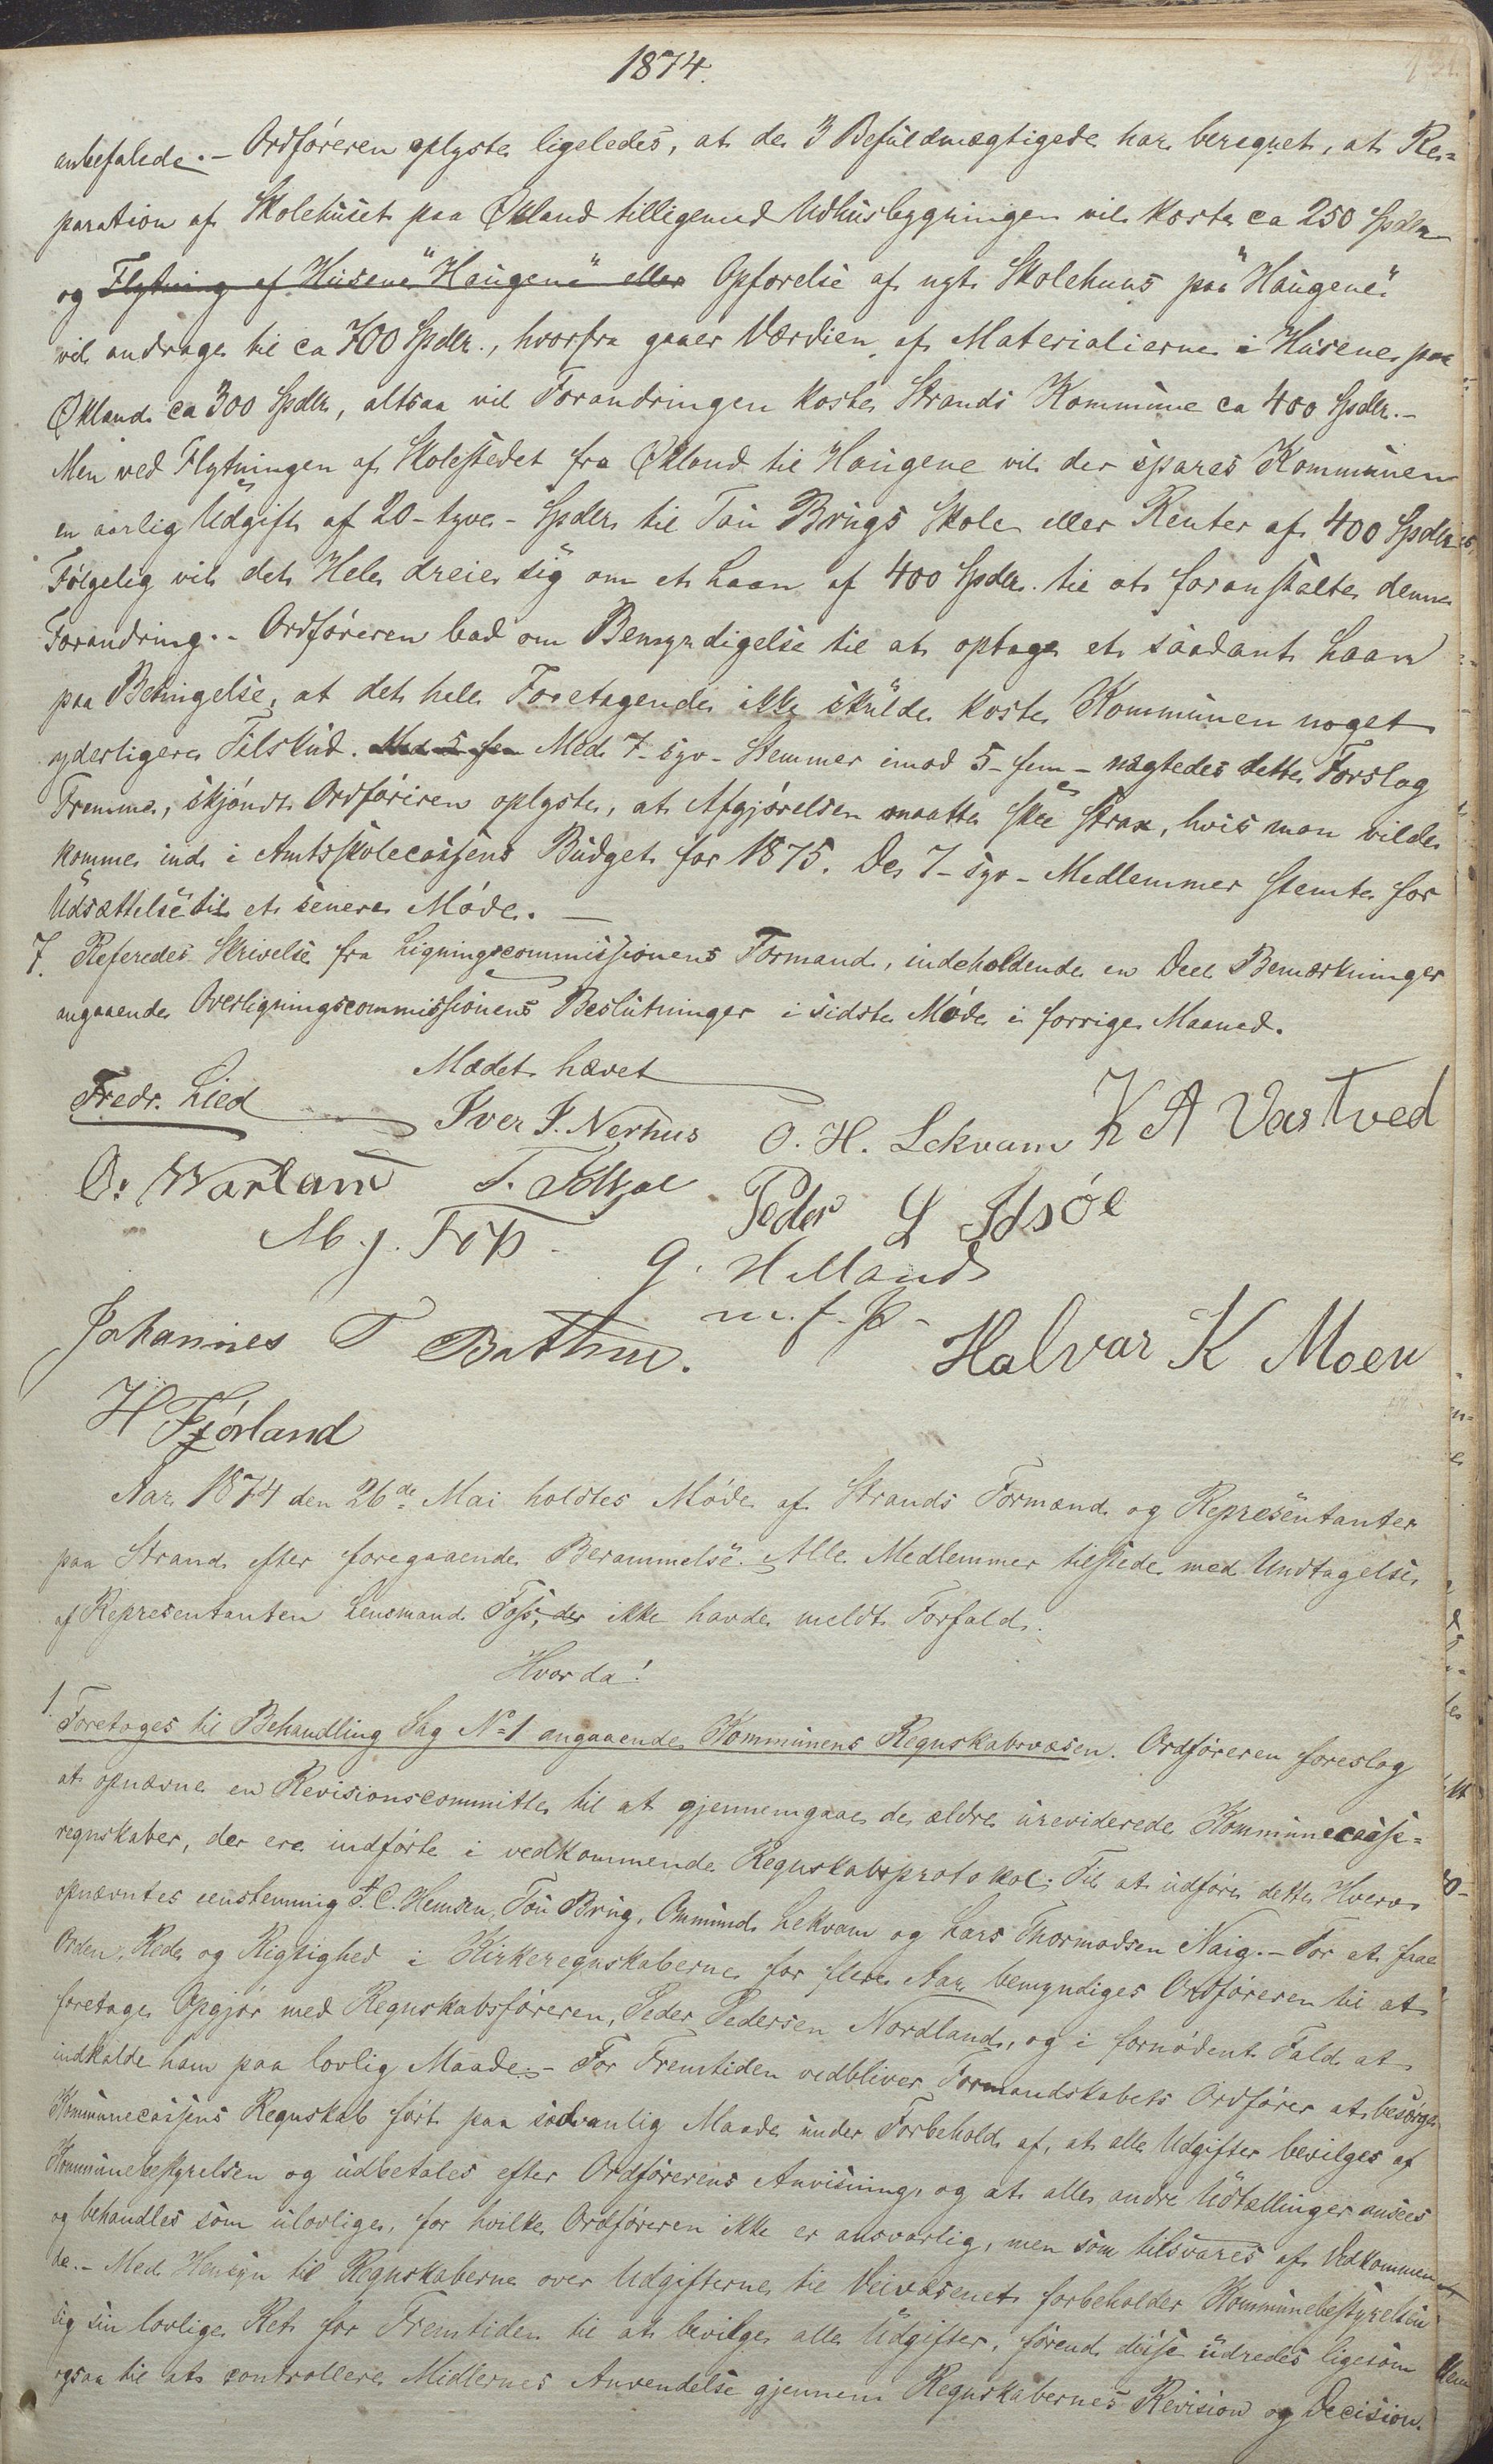 1874.
anbefalede. - Ordføreren oplyste ligeledes, at de 3 Befuldmægtigede har beregnet, at Re=
paration af Skolehuset paa Økland tilligemed Udhusbygningen vil koste ca 250 Spdlr
og Flytning af Husene "Haugene" eller Opførelse af nyt Skolehuus paa "Haugene"
vil andrage til ca 700 Spdlr., hvorfra gaaer Værdien af Materialierne i Husene paa
Økland ca 300 Spdlr, altsaa vil Forandringen koste Strands Kommune ca 400 Spdlr. -
Men ved Flytningen af Skolestedet fra Økland til Haugene vil der spares Kommunen
en aarlig Udgift af 20 - tyve - Spdlr til Tau Brugs Skole eller Renter af 400 Spdlr.
Følgelig vil det Hele dreie sig om et Laan af 400 Spdlr. til at foranstalte denne
Forandring. - Ordføreren bad om Bemyndigelse til at optage et saadant Laan
paa Betingelse, at det hele Foretagende ikke skulde koste Kommunen noget
yderligere Tilskud. Med 5 fem Med 7 - syv - Stemmer imod 5 - fem - nægtedes dette Forslag
Fremme, skjøndt Ordføreren oplyste, at Afgjørelsen maatte skee strax, hvis man vilde
komme ind i Amtsskolecassens Budget for 1875. De 7 - syv - Medlemmer stemte for
Udsættelse til et senere Møde. -
7. Referedes Skrivelse fra Ligningscommissionens Formand, indeholdende en Deel Bemærkninger
angaaende Overligningscommissionens Beslutninger i sidste Møde i forrige Maaned.
Mødet hævet
Fredr. Lied Iver I. Nerhus O. H. Lekvam K A Vastved
O. Warland T. Peder L Idsøe
M. J. Foss. G. Helland
m. f. P.
Johannes T Halvar K Moen
H Fjørland
Aar 1874 den 26de Mai holdtes Møde af Strands Formænd og Repræsentanter
paa Strand efter foregaaende Berammelse. Alle Medlemmer tilstede med Undtagelse
af Representanten Lensmand Foss, der ikke havde meldt Forfald.
Hvor da!
1. Foretoges til Behandling Sag No 1 angaaende Kommunens Regnskabsvæsen. Ordføreren foreslog
at opnævne en Revisionscommitte til at gjennemgaae de ældre ureviderede Kommunecasse=
regnskaber, der ere indførte i vedkommende Regnskabsprotokol. Til at udføre dette Hverv
opnævntes eenstemmig F. C. Hemsen, Tau Brug, Ommund Lekvam og Lars Thormodsen Naig. - For at faae
Orden, Rede og Rigtighed i Kirkeregnskaberne for flere Aar bemyndiges Ordføreren til at
foretage Opgjør med Regnskabsføreren, Peder Pedersen Nordland, og i fornødent Fald at
indkalde ham paa lovlig Maade. - For Fremtiden vedbliver Formandskabets Ordfører at besørge
Kommunecassens Regnskab ført paa sædvanlig Maade under Forbehold af, at alle Udgifter bevilges af
Kommunebestyrelsen og udbetales efter Ordførerens Anvisning, og at alle andre Udtællinger ansees
og behandles som ulovlige, for hvilke Ordføreren ikke er ansvarlig, men som tilsvares af Vedkommen-
de. - Med Hensyn til Regnskaberne over Udgifterne til Veivæsenet forbeholder Kommunebestyrelsen
sig sin lovlige Ret for Fremtiden til at bevilge alle Udgifter, førend disse udredes ligesom
ogsaa til at controllere Midlernes Anvendelse gjennem Regnskabernes Revision og Decision.